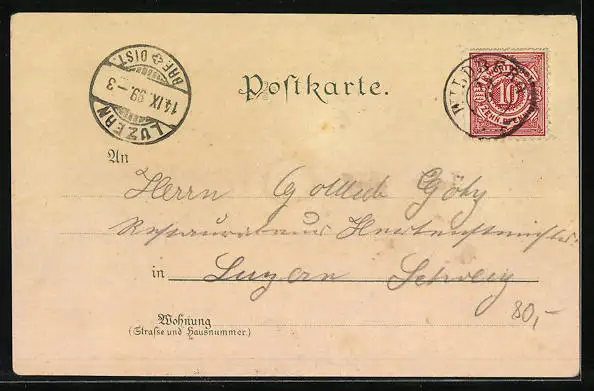 Postkarte.
BRF DIST.
14.IX.99.-3
LUZERN
WILDBERG
10
ZEHN PFENNIG
An
Herrn Gottlieb Götz
Restaurateur
in Luzern Schweiz
80,-
Wohnung
(Straße und Hausnummer.)